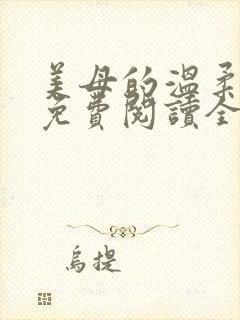 美母的溫柔
免費閱讀全
烏提